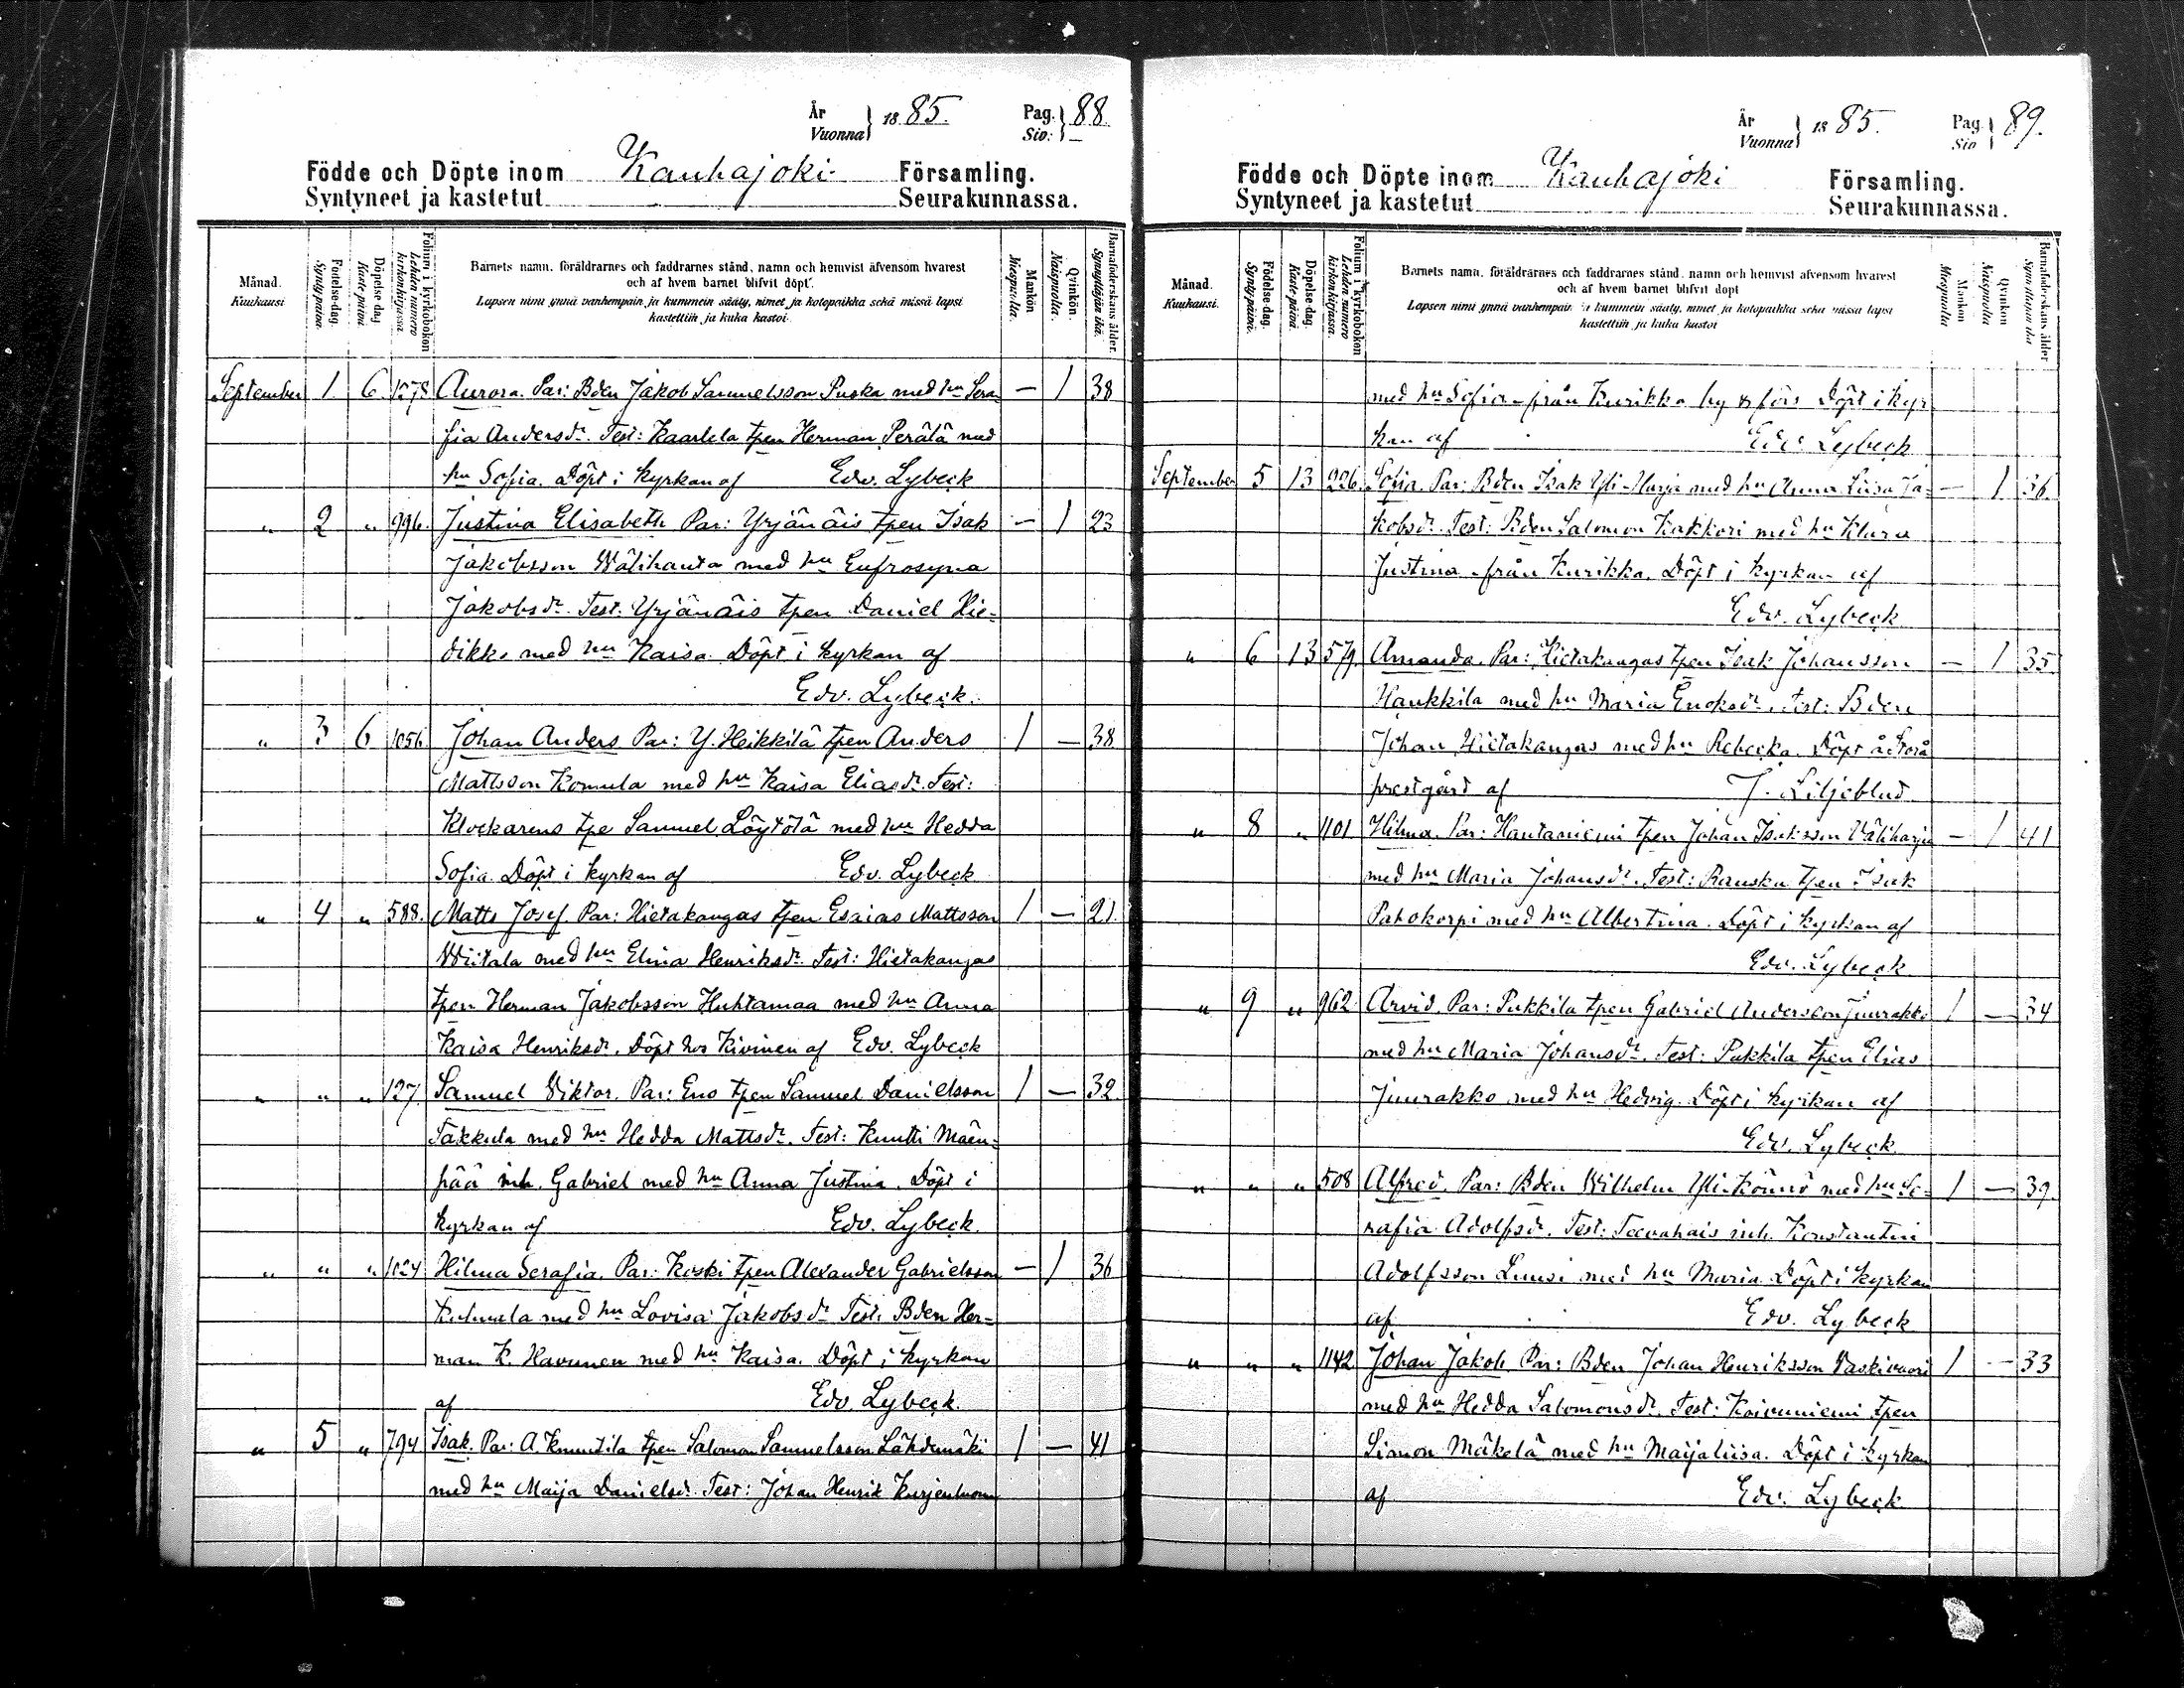 År
Vuonna } 1885. Pag.
Sio: } 88.
Födde och Döpte inom Kauhajoki Församling.
Syntyneet ja kastetut Seurakunnassa.
Månad.
Kuukausi
Födelse-dag.
Syntypäivä.
Döpelse dag
Kaste päivä.
Folium i kyrkoboken
Lehden numero
kirkonkirjassa.
Barnets namn, föräldrarnes och faddrarnes stånd, namn och hemvist äfvensom hvarest
och af hvem barnet blifvit döpt.
Lapsen nimi ynnä vanhempain ja kummein sääty, nimet ja kotopaikka sekä missä lapsi
kastettiin ja kuka kastoi.
Mankön
Miespuolia.
Qvinkön.
Naispuolia.
Barnaföderskans ålder.
Synnyttäjän ikä.
September 1 6 1078 Aurora. Par: Bden Jakob Samuelsson Puska med hu Sera- — 1 38
fia Andersdr. Test: Kaarlela tpen Herman Perälä med
hu Sofia. Döpt i kyrkan af Edv. Lybeck
" 2 " 996. Justina Elisabeth Par: Yrjänäis tpen Isak — 1 23
Jakobsson Wälihauta med hu Eufrosyna
Jakobsdr. Test: Yrjänäis tpen Daniel Hie-
dikko med hu Kaisa. Döpt i kyrkan af
Edv. Lybeck.
" 3 6 1056 Johan Anders Par: Y. Heikkilä tpen Anders 1 — 38
Mattsson Komula med hu Kaisa Eliasdr. Test:
Klockarens tpe Samuel Löytölä med hu Hedda
Sofia. Döpt i kyrkan af Edv. Lybeck
" 4 " 588. Matts Josef. Par: Hietakangas tpen Esaias Mattsson 1 — 21.
Wiitala med hu Elina Henriksdr. Test: Hietakangas
tpen Herman Jakobsson Huhtamaa med hu Anna
Kaisa Henriksdr. Döpt hos Kivinen af Edv. Lybeck
" " " 127. Samuel Viktor. Par: Eno tpen Samuel Danielsson 1 — 32
Takkula med hu Hedda Mattsdr. Test: Knutti Mäen-
pää inh. Gabriel med hu Anna Justina. Döpt i
kyrkan af Edv. Lybeck.
" " " 1024 Hilma Serafia. Par: Koski tpen Alexander Gabrielsson — 1 36
med hu Lovisa Jakobsdr Test: Bden Her-
man K. Havunen med hu Kaisa. Döpt i kyrkan
af Edv. Lybeck.
" 5 " 794 Isak. Par: A. Knuutila tpen Salomon Samuelsson Lähdemäki 1 — 41
med hu Maija Danielsdr. Test: Johan Henrik Kurjenluoma
År
Vuonna } 1885. Pag
Sio } 89.
Födde och Döpte inom Kauhajoki Församling.
Syntyneet ja kastetut Seurakunnassa.
Månad.
Kuukausi.
Födelse-dag.
Syntypäivä.
Döpelse-dag.
Kaste päivä.
Folium i kyrkoboken
Lehden numero
kirkonkirjassa.
Barnets namn, föräldrarnes och faddrarnes stånd, namn och hemvist äfvensom hvarest
och af hvem barnet blifvit döpt
Lapsen nimi ynnä vanhempain ja kummein sääty, nimet ja kotopaikka sekä missä lapsi
kastettiin ja kuka kastoi
Mankön
Miespuolia
Qvinkön
Naispuolia
Barnaföderskans ålder
Synnyttäjän ikä
med hu Sofia från Kurikka by & förs Döpt i kyr
kan af Edv. Lybeck
September 5 13 226. Sofia. Par: Bden Isak Yli-Harja med hu Anna Liisa Ja- — 1 36.
kobsdr. Test: Bden Salomon Kakkori med hu Klara
Justina från Kurikka. Döpt i kyrkan af
Edv. Lybeck
" 6 13 579. Amanda. Par: Hietakangas tpen Isak Johansson — 1 35
Haukkila med hu Maria Enoksdr. Test: Bden
Johan Hietakangas med hu Rebecka. Döpt å Storå
prestgård af J. Liljeblad
" 8 " 1101 Hilma. Par: Hautaniemi tpen Johan Isaksson Väliharju — 1 41
med hu Maria Johansdr. Test: Rauska tpen Isak
Pahokorpi med hu Albertina. Döpt i kyrkan af
Edv. Lybeck
" 9 " 962 Arvid. Par: Pukkila tpen Gabriel Andersson Juurakko 1 — 34
med hu Maria Johansdr. Test: Pukkila tpen Elias
Juurakko med hu Hedvig. Döpt i kyrkan af
Edv. Lybeck
" " " 508 Alfred. Par: Bden Wilhelm Yli-Könnö med hu Se- 1 — 39.
rafia Adolfsdr. Test: Teevahais inh. Konstantin
Adolfsson Luusi med hu Maria. Döpt i kyrkan
af Edv. Lybeck
" " " 1142 Johan Jakob. Par: Bden Johan Henriksson Vaskivuori 1 — 33
med hu Hedda Salomonsdr. Test: Koivuniemi tpen
Simon Mäkelä med hu Maijaliisa. Döpt i kyrkan
af Edv. Lybeck